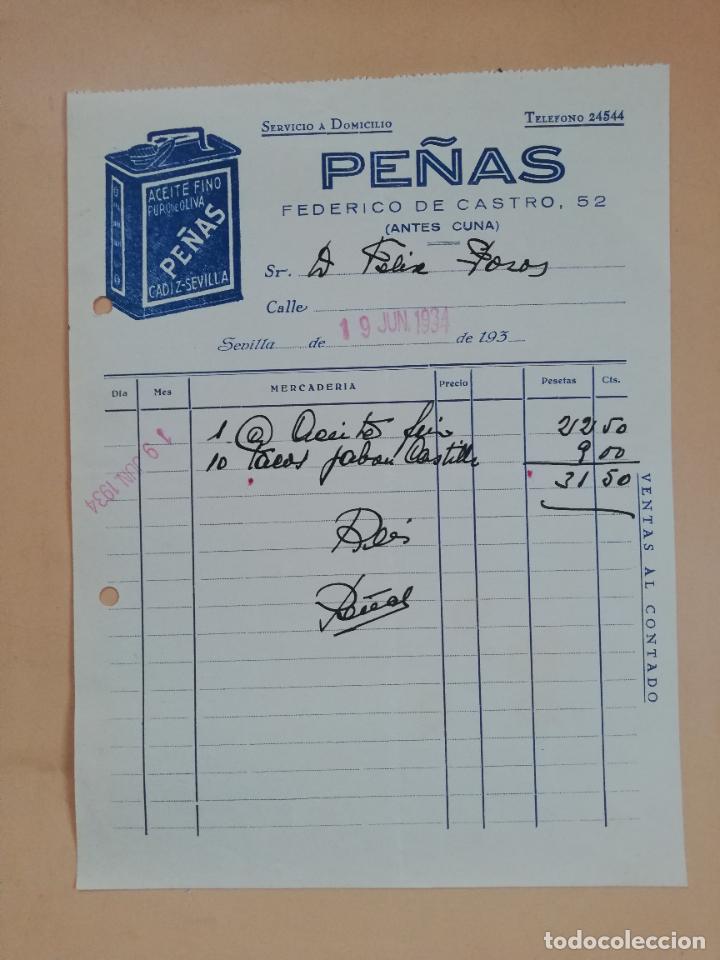 SERVICIO A DOMICILIO
TELEFONO 24544
PEÑAS
FEDERICO DE CASTRO, 52
(ANTES CUNA)
ACEITE FINO
PURO DE OLIVA
PEÑAS
CADIZ-SEVILLA
Sr. D Felix Poros
Calle
Sevilla de 19 JUN. 1934 de 193
Dia Mes MERCADERIA Precio Pesetas Cts.
19 JUN. 1934
1 @ Aceite fino 22 50
10 tacos jabon Castilla 9 00
31 50
Peñas
VENTAS AL CONTADO
todocoleccion.net